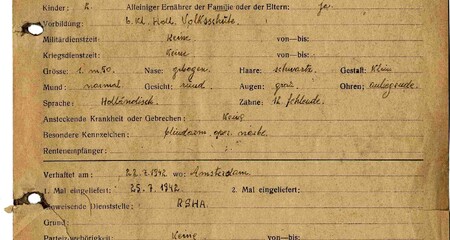 Kinder: 2 Alleiniger Ernährer der Familie oder der Eltern: ja
Vorbildung: 6. Kl. Holl. Volksschule
Militärdienstzeit: Keine von—bis:
Kriegsdienstzeit: Keine von—bis:
Grösse: 1. m. 50. Nase: gebogen Haare: schwarz Gestalt: klein
Mund: normal Gesicht: rund Augen: grau Ohren: anliegende
Sprache: Holländisch. Zähne: 16. fehlende.
Ansteckende Krankheit oder Gebrechen: Keine
Besondere Kennzeichen: blinddarm. oper. narbe.
Rentenempfänger:
Verhaftet am: 22. 2. 1942 wo: Amsterdam
1. Mal eingeliefert: 25. 7. 1942 2. Mal eingeliefert:
weisende Dienststelle: RSHA.
Grund:
Parteizugehörigkeit: Keine von—bis: